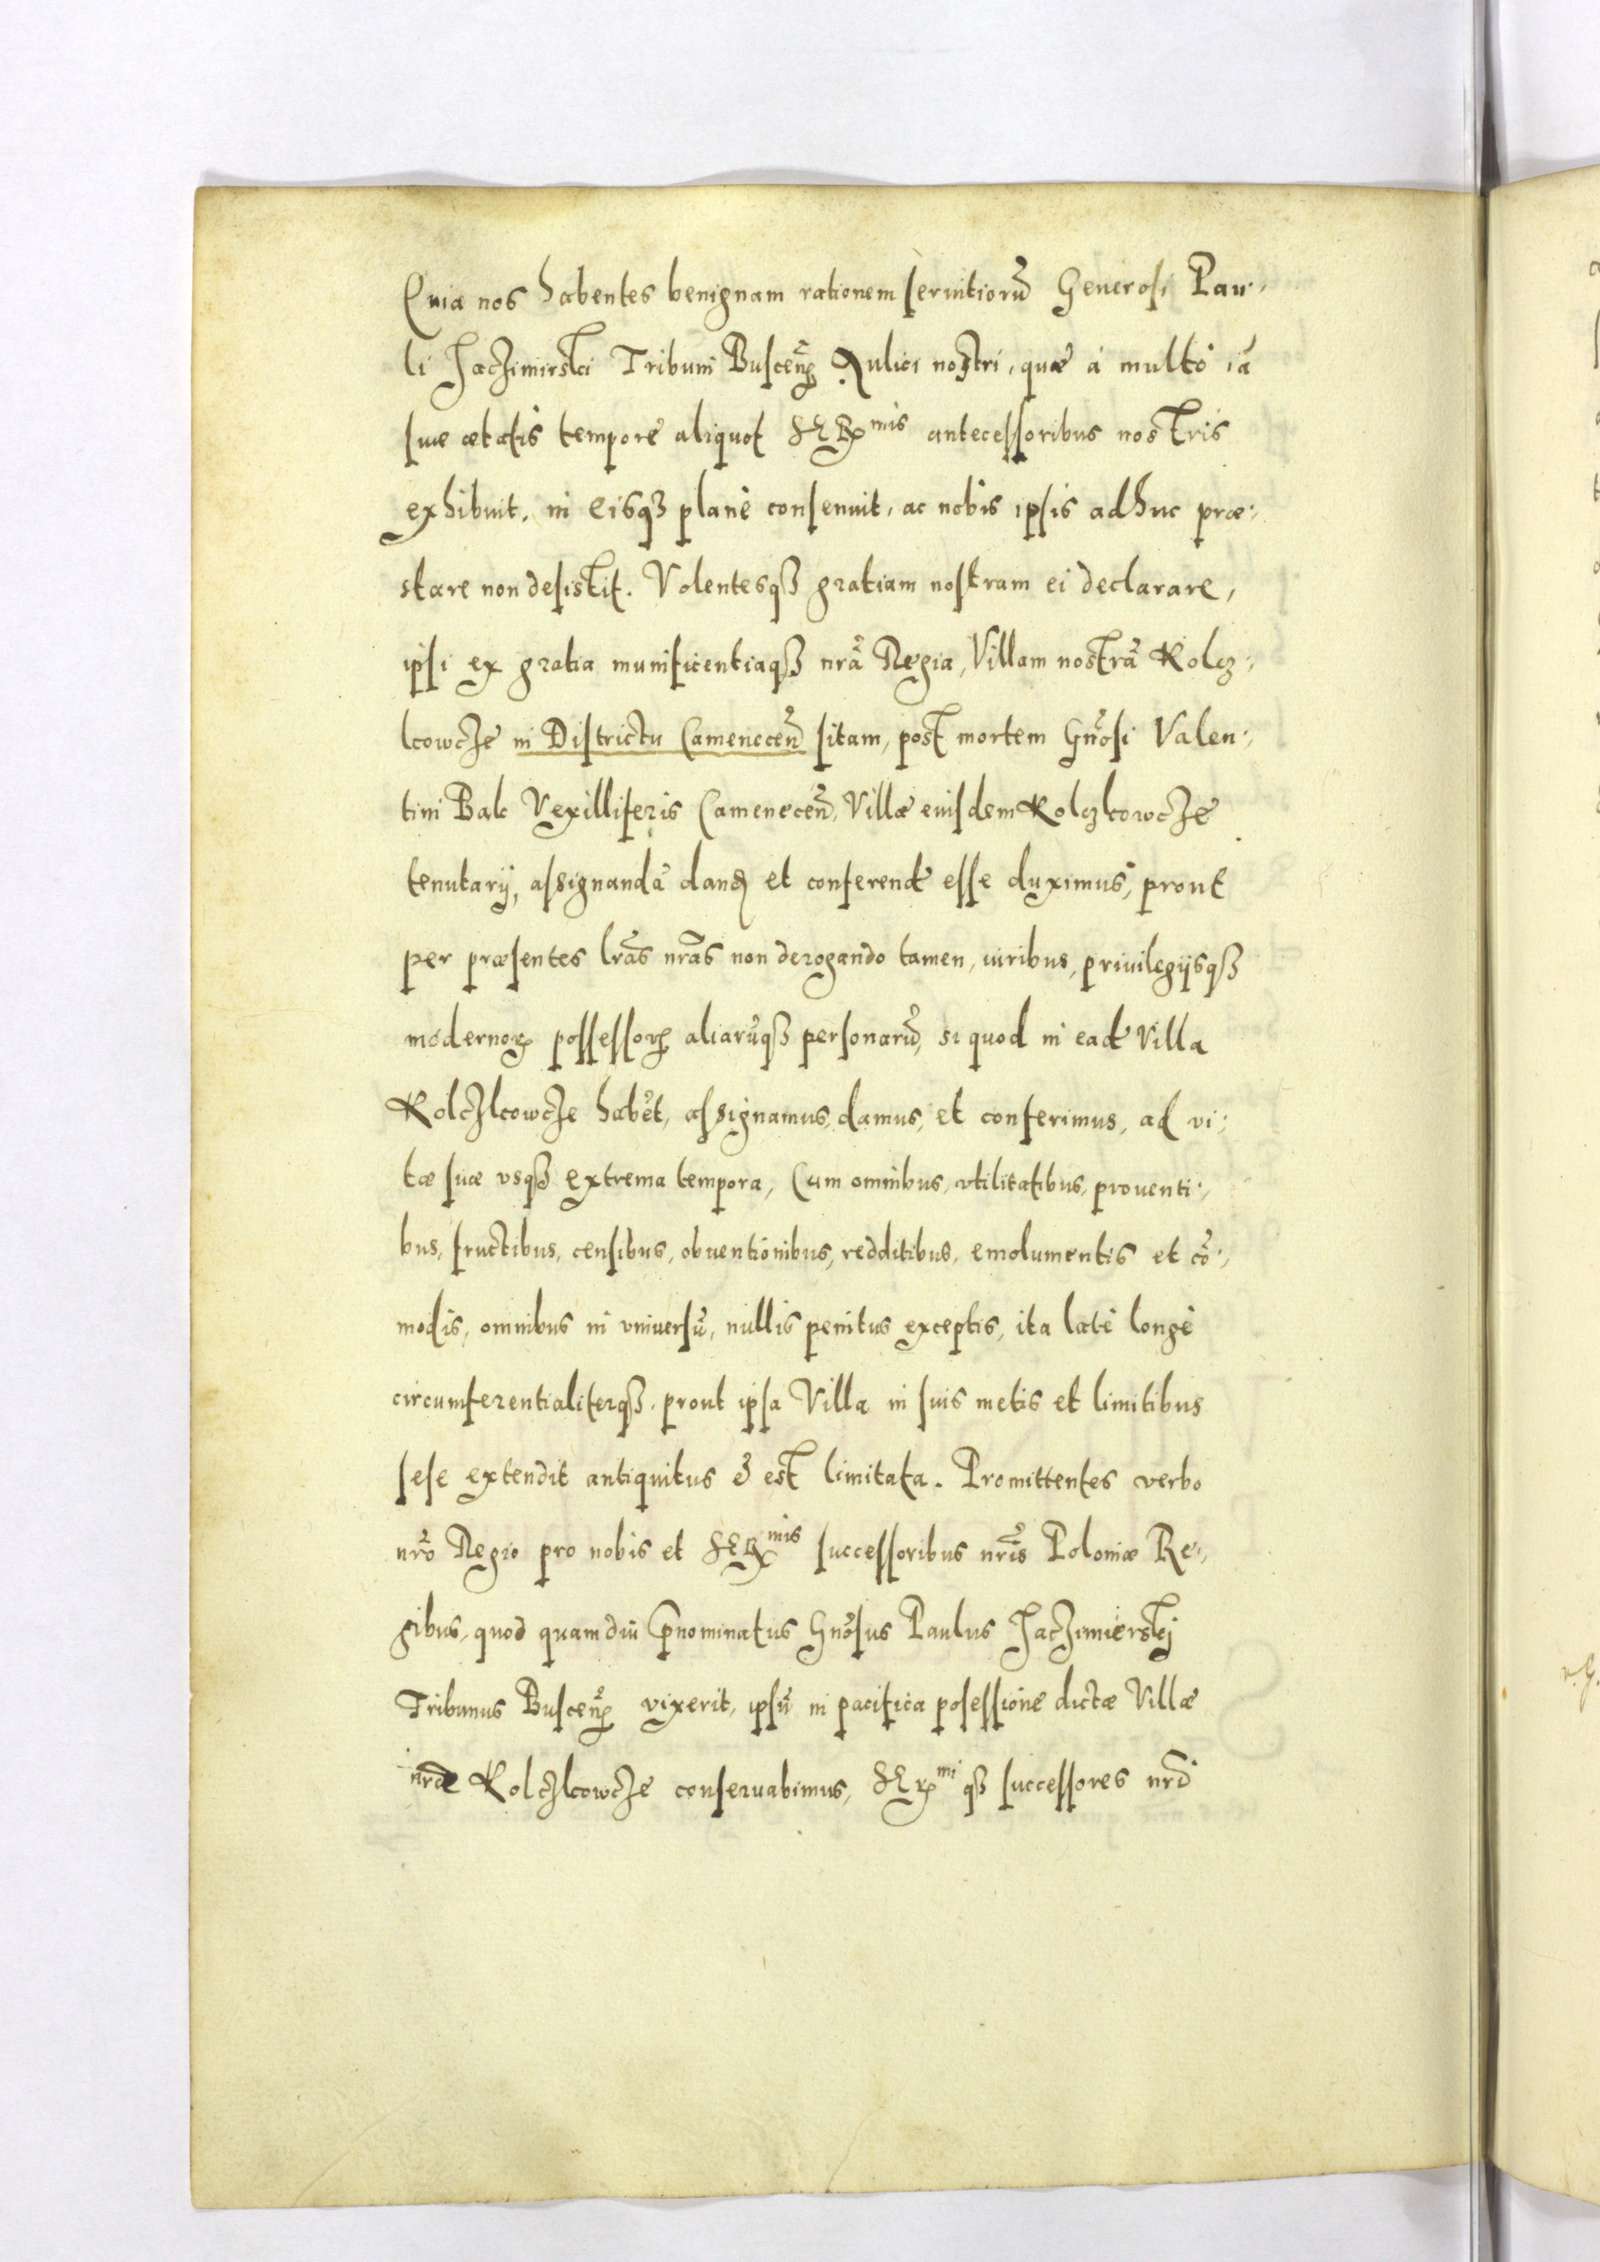 Quia nos habentes benignam rationem seruitiorũ Generosi Pau-
li Jaczimirski Tribuni Buscen̄ Aulici nostri, quæ á multo iã
suæ ætatis tempore aliquot SERmis antecessoribus nostris
exhibuit, in eisqȝ planè consenuit, ac nobis ipsis adhuc præ-
stare non desistit. Volentesqȝ gratiam nostram ei declarare,
ipsi ex gratia munificentiaqȝ nrã Regia, Villam nostrã Kolcz-
kowcze in Districtu Camenecen̄ sitam, post mortem Gnõsi Valen-
tini Bak Vexilliferis Camenecen̄, Villæ eiusdem Kolczkowcze
tenutarij, assignandã dand et conferend esse duximus, prout
per præsentes lrãs nrãs non derogando tamen, iuribus, priuilegijsqȝ
modernoꝝ possessoꝝ aliarũqȝ personarũ, si quod in ead Villa
Kolczkowcze habēt, assignamus, damus, et conferimus, ad vi-
tæ suæ vsqȝ extrema tempora, Cum omnibus, vtilitatibus, prouenti-
bus, fructibus, censibus, obuentionibus, redditibus, emolumentis et cõ-
modis, omnibus in vniuersũ, nullis penitus exceptis, ita latè longè
circumferentialiterqȝ, prout ipsa Villa in suis metis et limitibus
sese extendit antiquitus & est limitata. Promittentes verbo
nrõ Regio pro nobis et SERmis successoribus nrĩs Poloniæ Re-
gibus, quod quamdiu p̄nominatus Gnõsus Paulus Jaczimierskj
Tribunus Buscen̄ vixerit, ipsũ in pacifica posessione dictæ Villæ
nræ Kolczkowcze conseruabimus, SERmi qȝ successores nrĩ